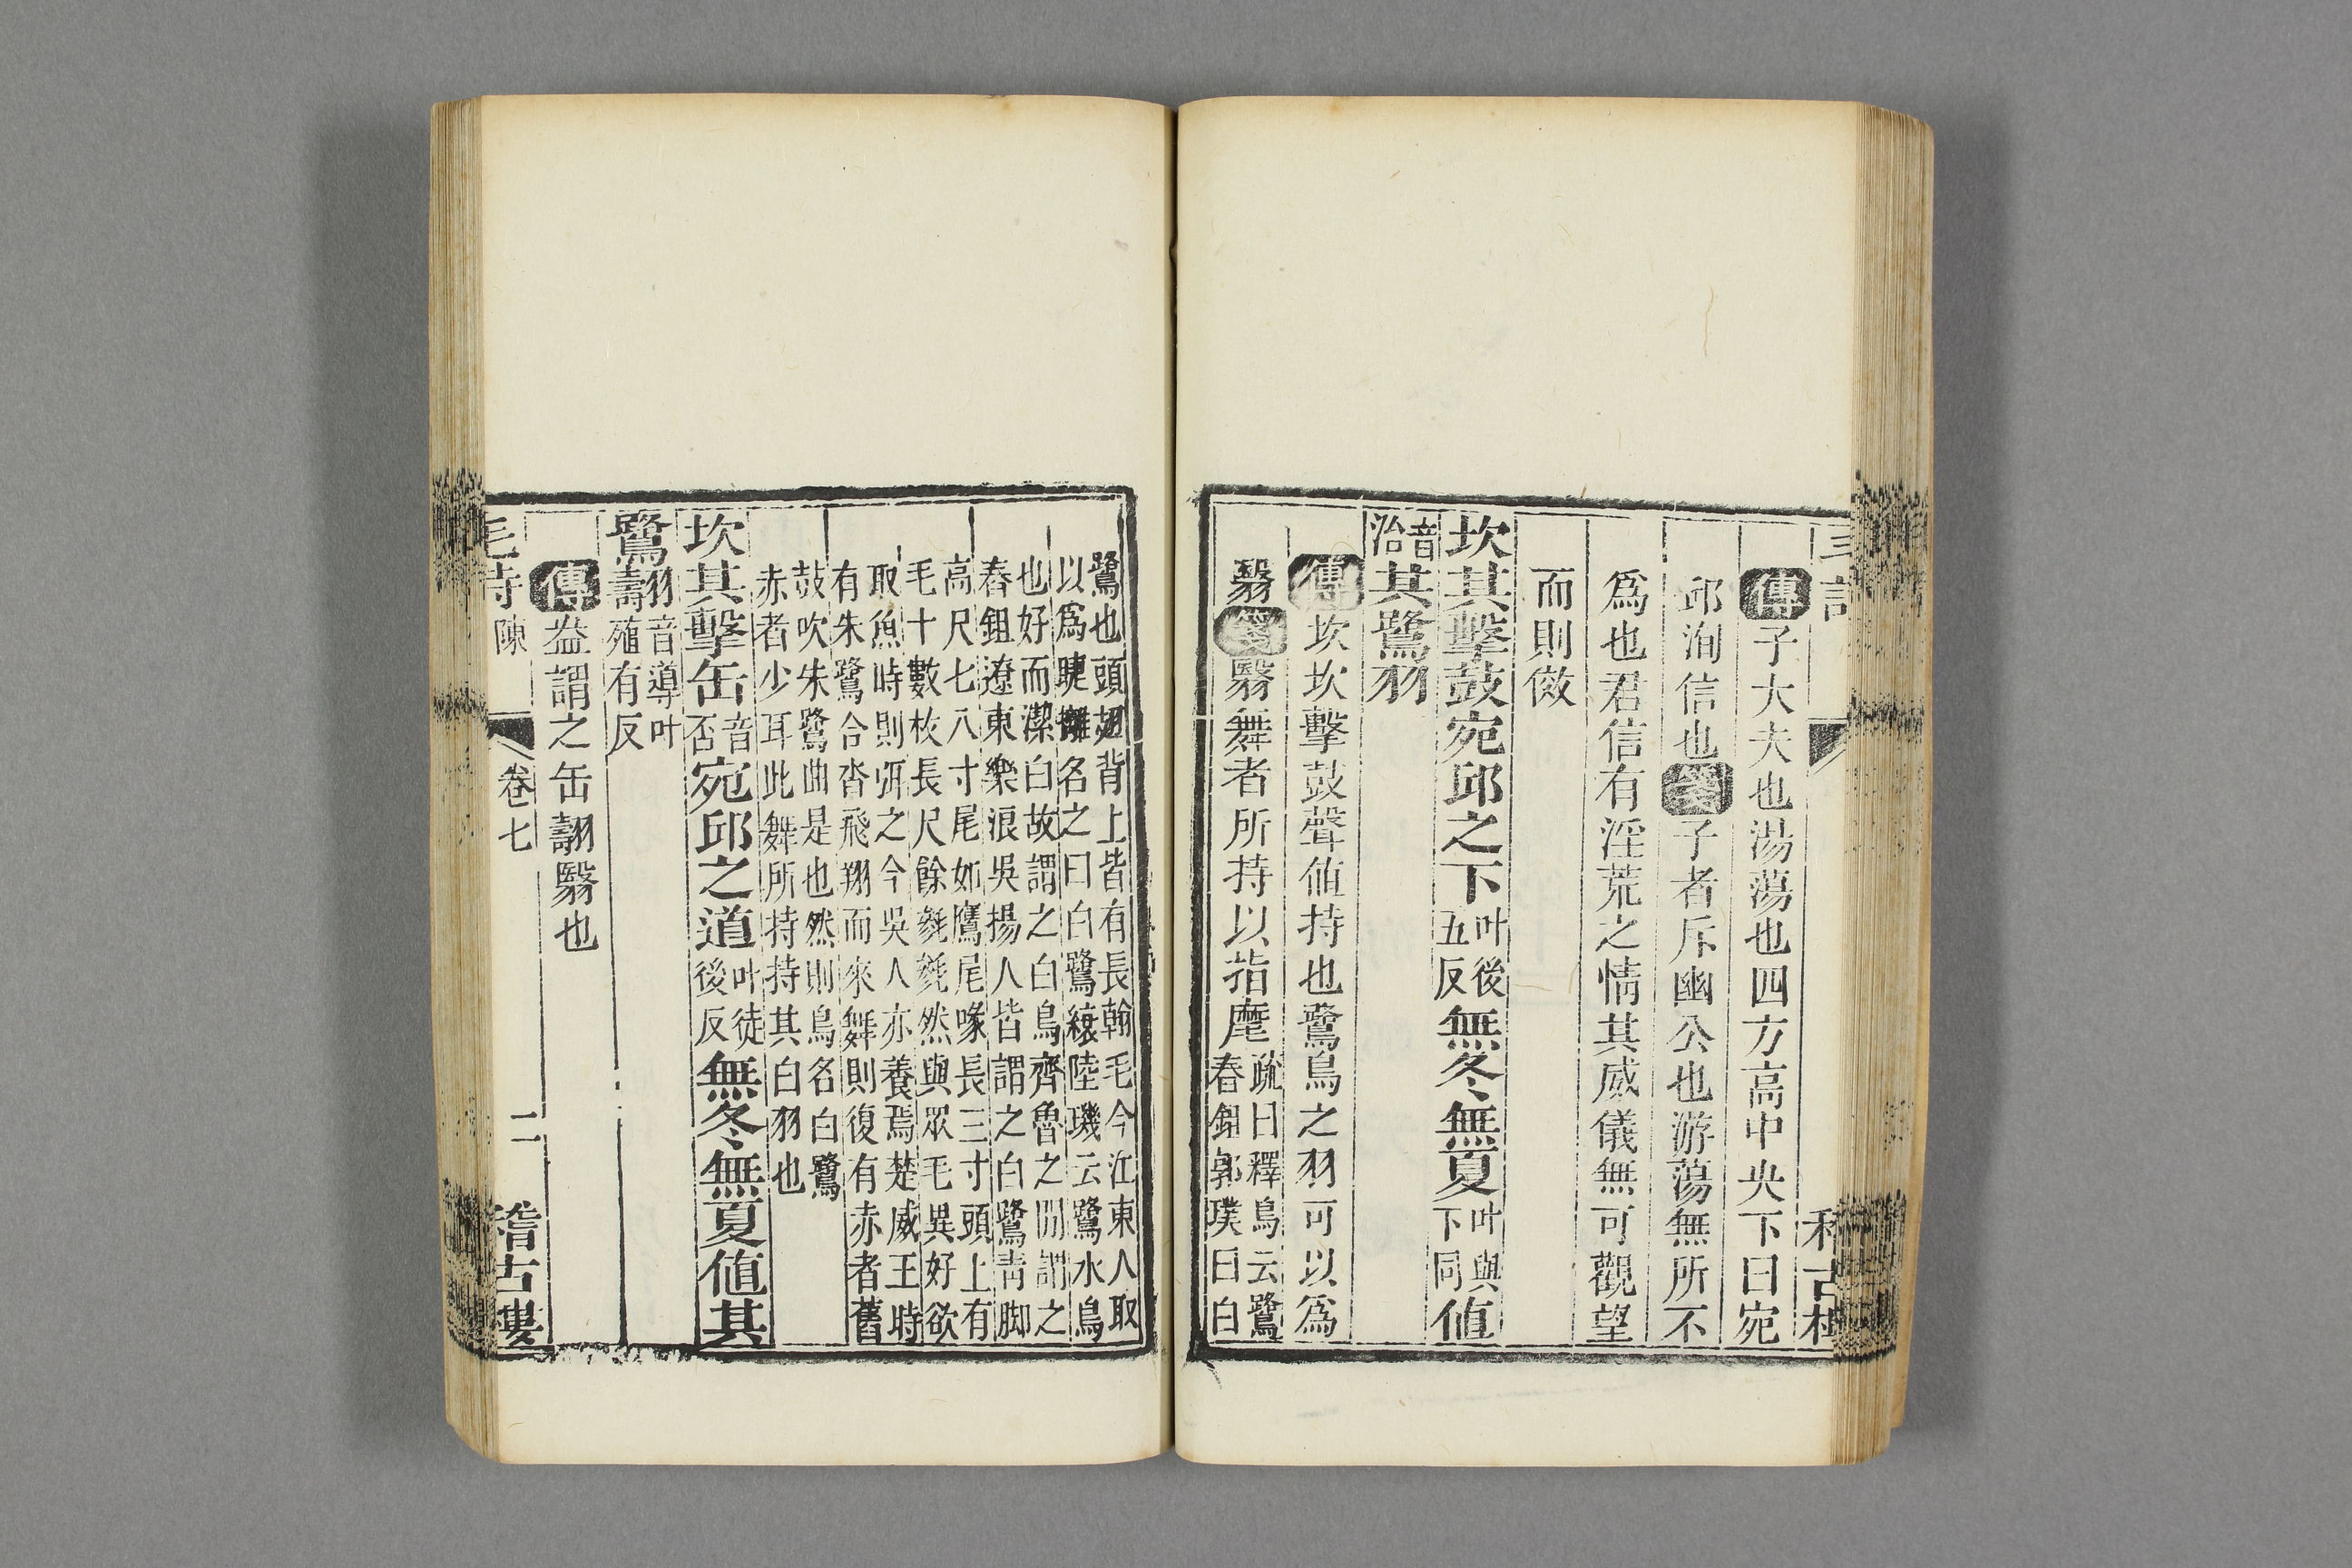 傳子大夫也湯蕩也四方高中央下曰宛
邱洵信也箋子者斥幽公也游蕩無所不
爲也君信有淫荒之情其威儀無可觀望
而則傚
坎其擊鼓宛邱之下叶後五反無冬無夏叶與下同値
音治其鷺羽
傳坎坎擊鼓聲値持也鷺鳥之羽可以爲
翳箋翳舞者所持以指麾疏曰釋鳥云鷺
春鉏郭璞曰白
鷺也頭翅背上皆有長翰毛今江東人取
以爲睫㰚名之曰白鷺縗陸璣云鷺水鳥
也好而潔白故謂之白鳥齊魯之閒謂之
舂鉏遼東樂浪吳揚人皆謂之白鷺靑脚
高尺七八寸尾如鷹尾喙長三寸頭上有
毛十數枚長尺餘毿毿然與眾毛異好欲
取魚時則弭之今吳人亦養焉楚威王時
有朱鷺合沓飛翔而來舞則復有赤者舊
鼓吹朱鷺曲是也然則鳥名白鷺
赤者少耳此舞所持持其白羽也
坎其擊缶音否宛邱之道叶徒後反無冬無夏値其
鷺翿音導叶壽殖有反
傳盎謂之缶翿翳也
毛詩 陳 卷七 二 稽古樓